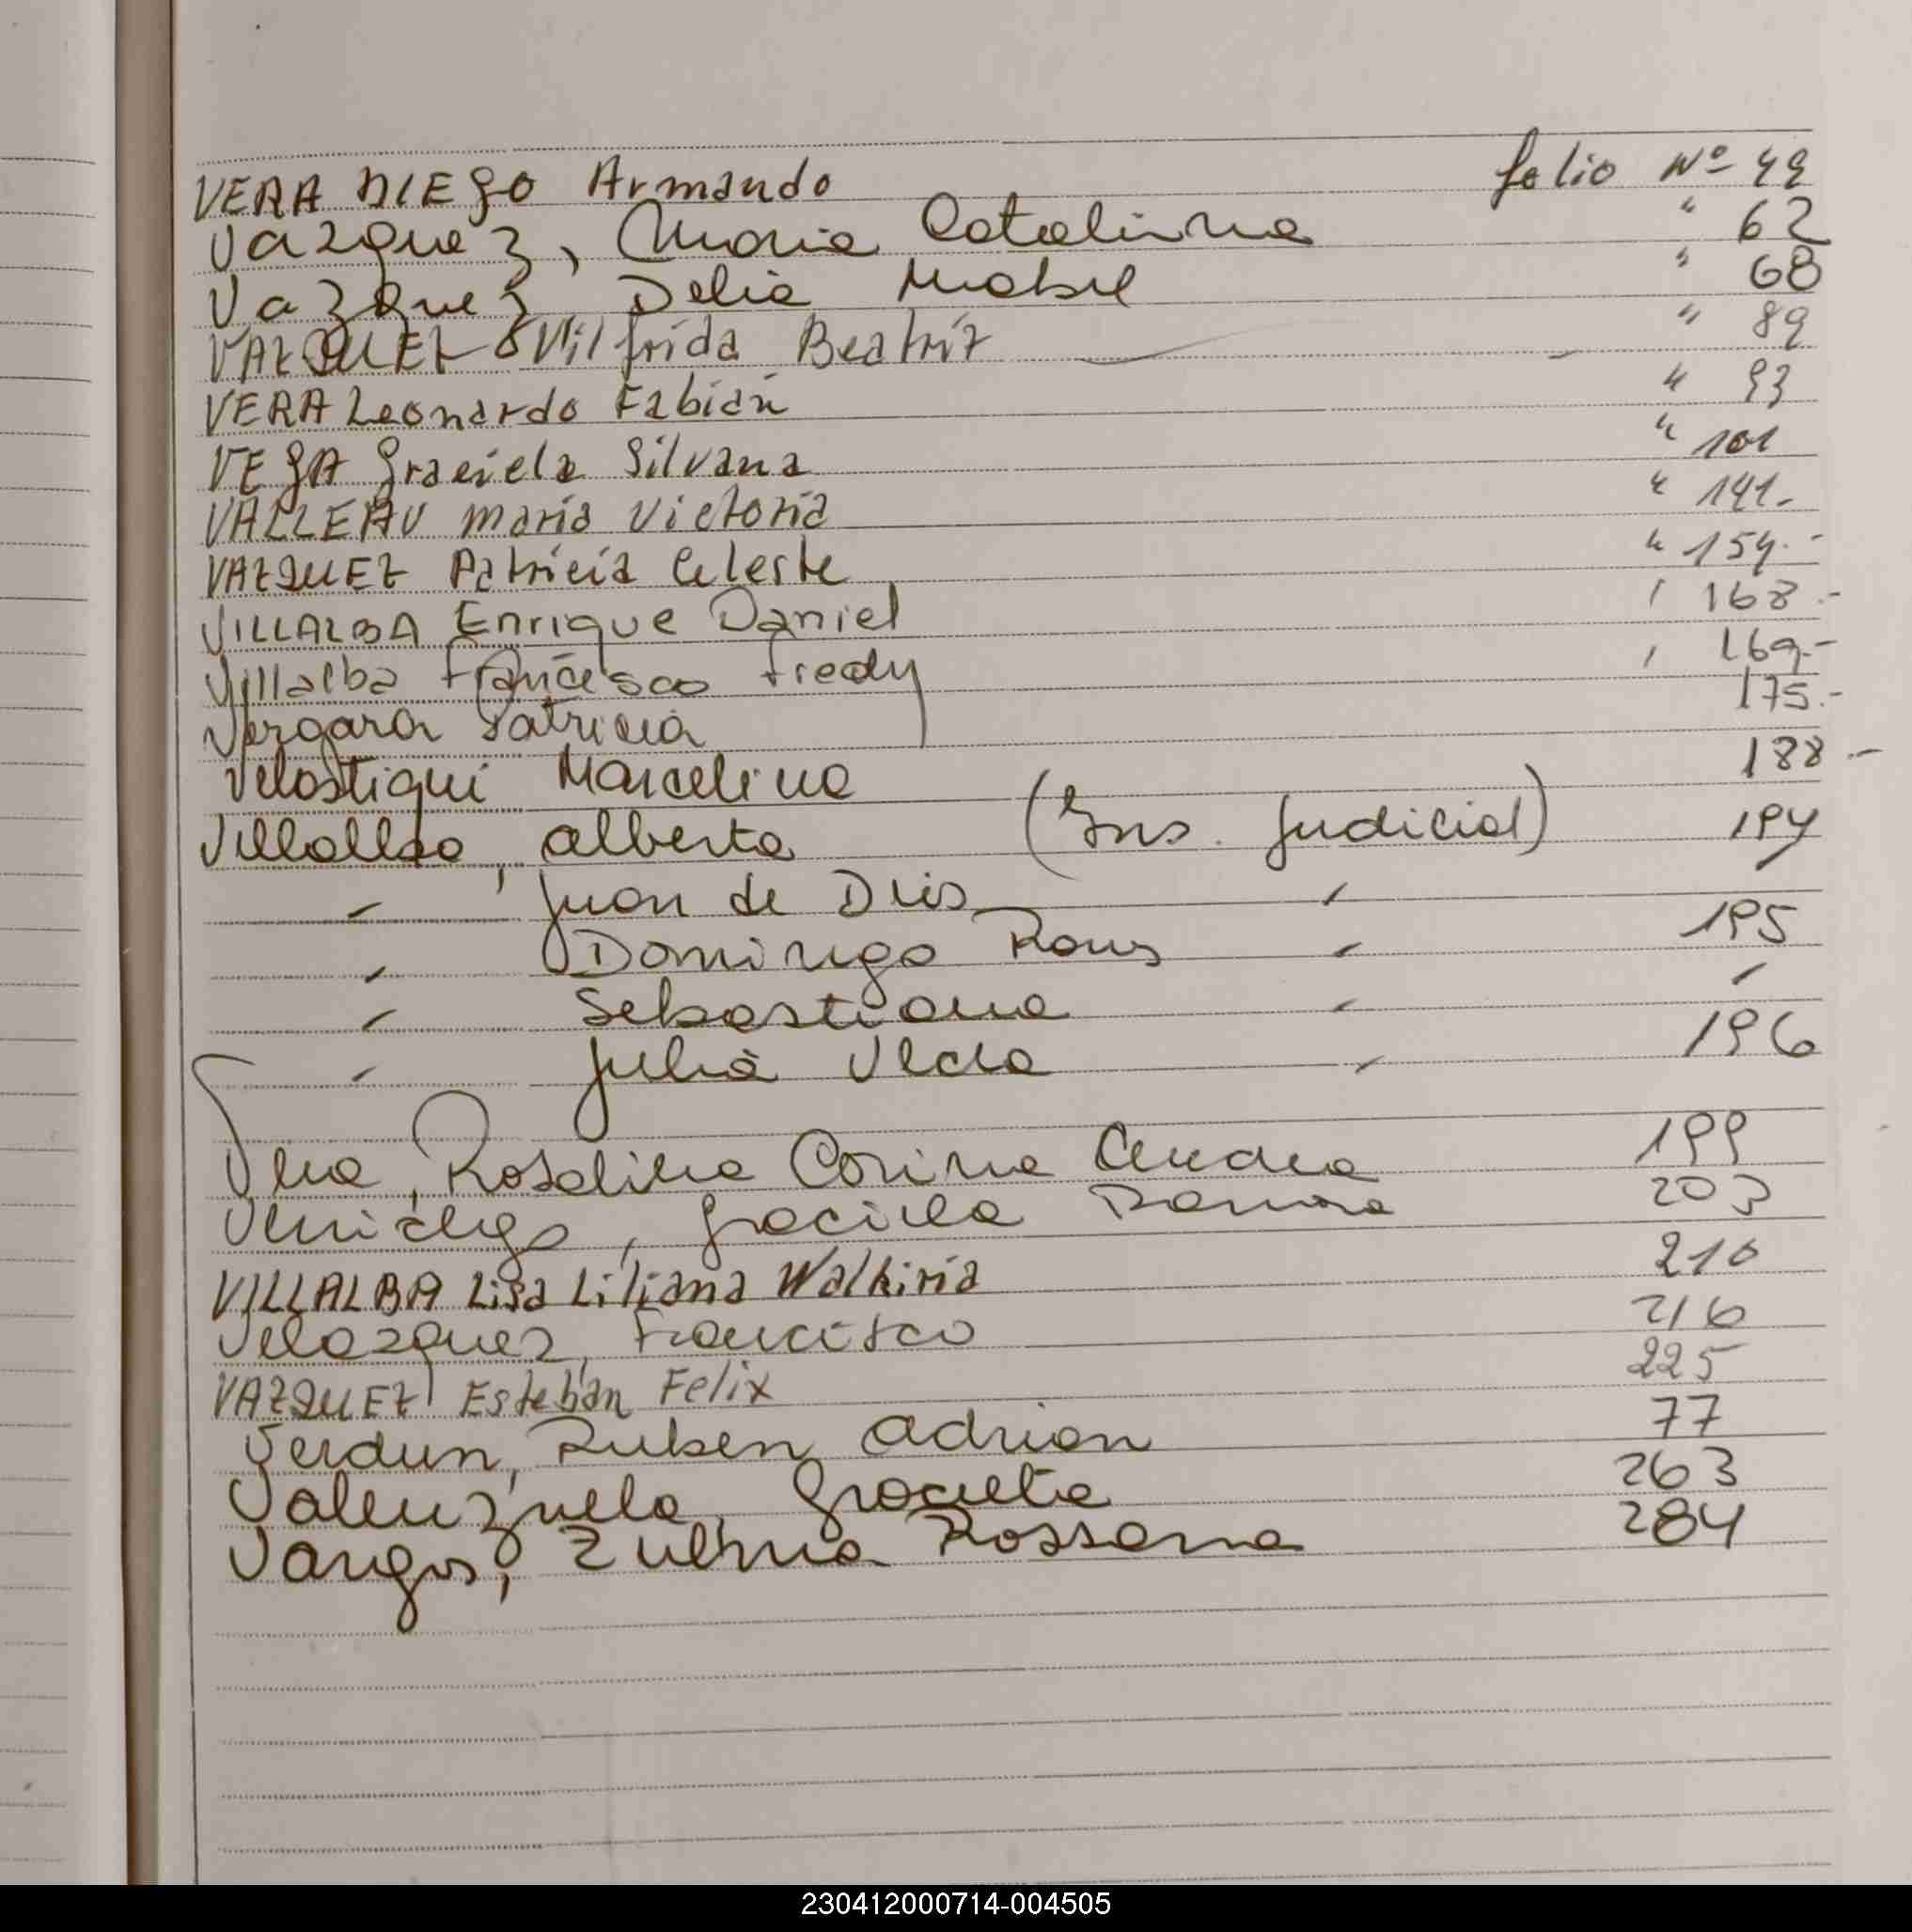 VERA DIEGO Armando folio Nº 49
Vazquez, Maria Catalina " 62
Vazquez Delia Mabel " 68
VAZQUEZ Vilfrida Beatriz " 89
VERA Leonardo Fabián " 93
VEGA Graciela Silvana " 101
VALLEAU María Victoria " 141.-
VAZQUEZ Patricia Celeste " 154.-
VILLALBA Enrique Daniel " 168.-
Villalba Francisco Fredy " 169.-
Vergara Patricia 175.-
Velostiqui Marcelina 188.-
Villalba, Alberta (Ins. Judicial) 194
" Juan de Dios " "
" Domingo Rams " 195
" Sebastiana " "
" Julia " 196
Vera, Rosalina Corina 199
Graciela Ramona 203
VILLALBA Lisa Liliana Walkiria 210
Velazquez, Francisco 216
VAZQUEZ Esteban Felix 225
Verdun, Ruben Adrian 77
Valenzuela, Graciela 263
Vargas, Zulma Rossana 284
230412000714-004505